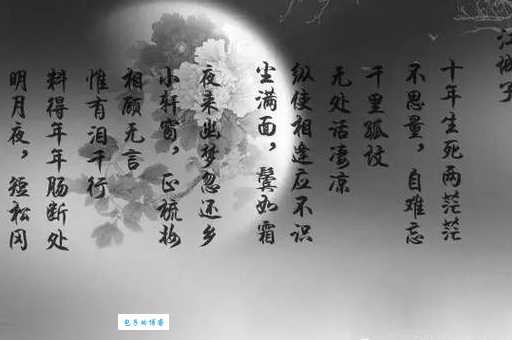 江城子
十年生死两茫茫
不思量，自难忘
千里孤坟
无处话凄凉
纵使相逢应不识
尘满面，鬓如霜
夜来幽梦忽还乡
小轩窗，正梳妆
相顾无言
惟有泪千行
料得年年肠断处
明月夜，短松冈